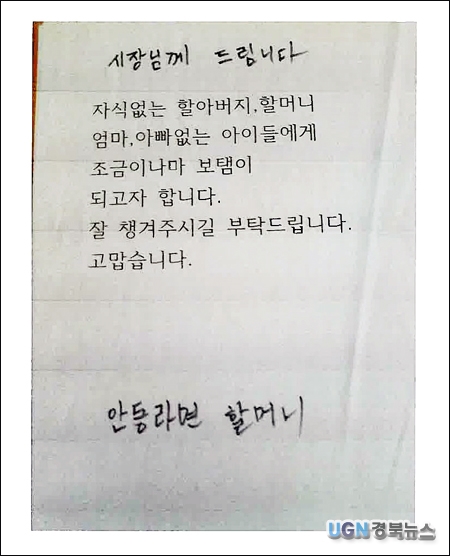 시장님께 드립니다
자식없는 할아버지,할머니
엄마,아빠없는 아이들에게
조금이나마 보탬이
되고자 합니다.
잘 챙겨주시길 부탁드립니다.
고맙습니다.
안동라면 할머니
UGN경북뉴스